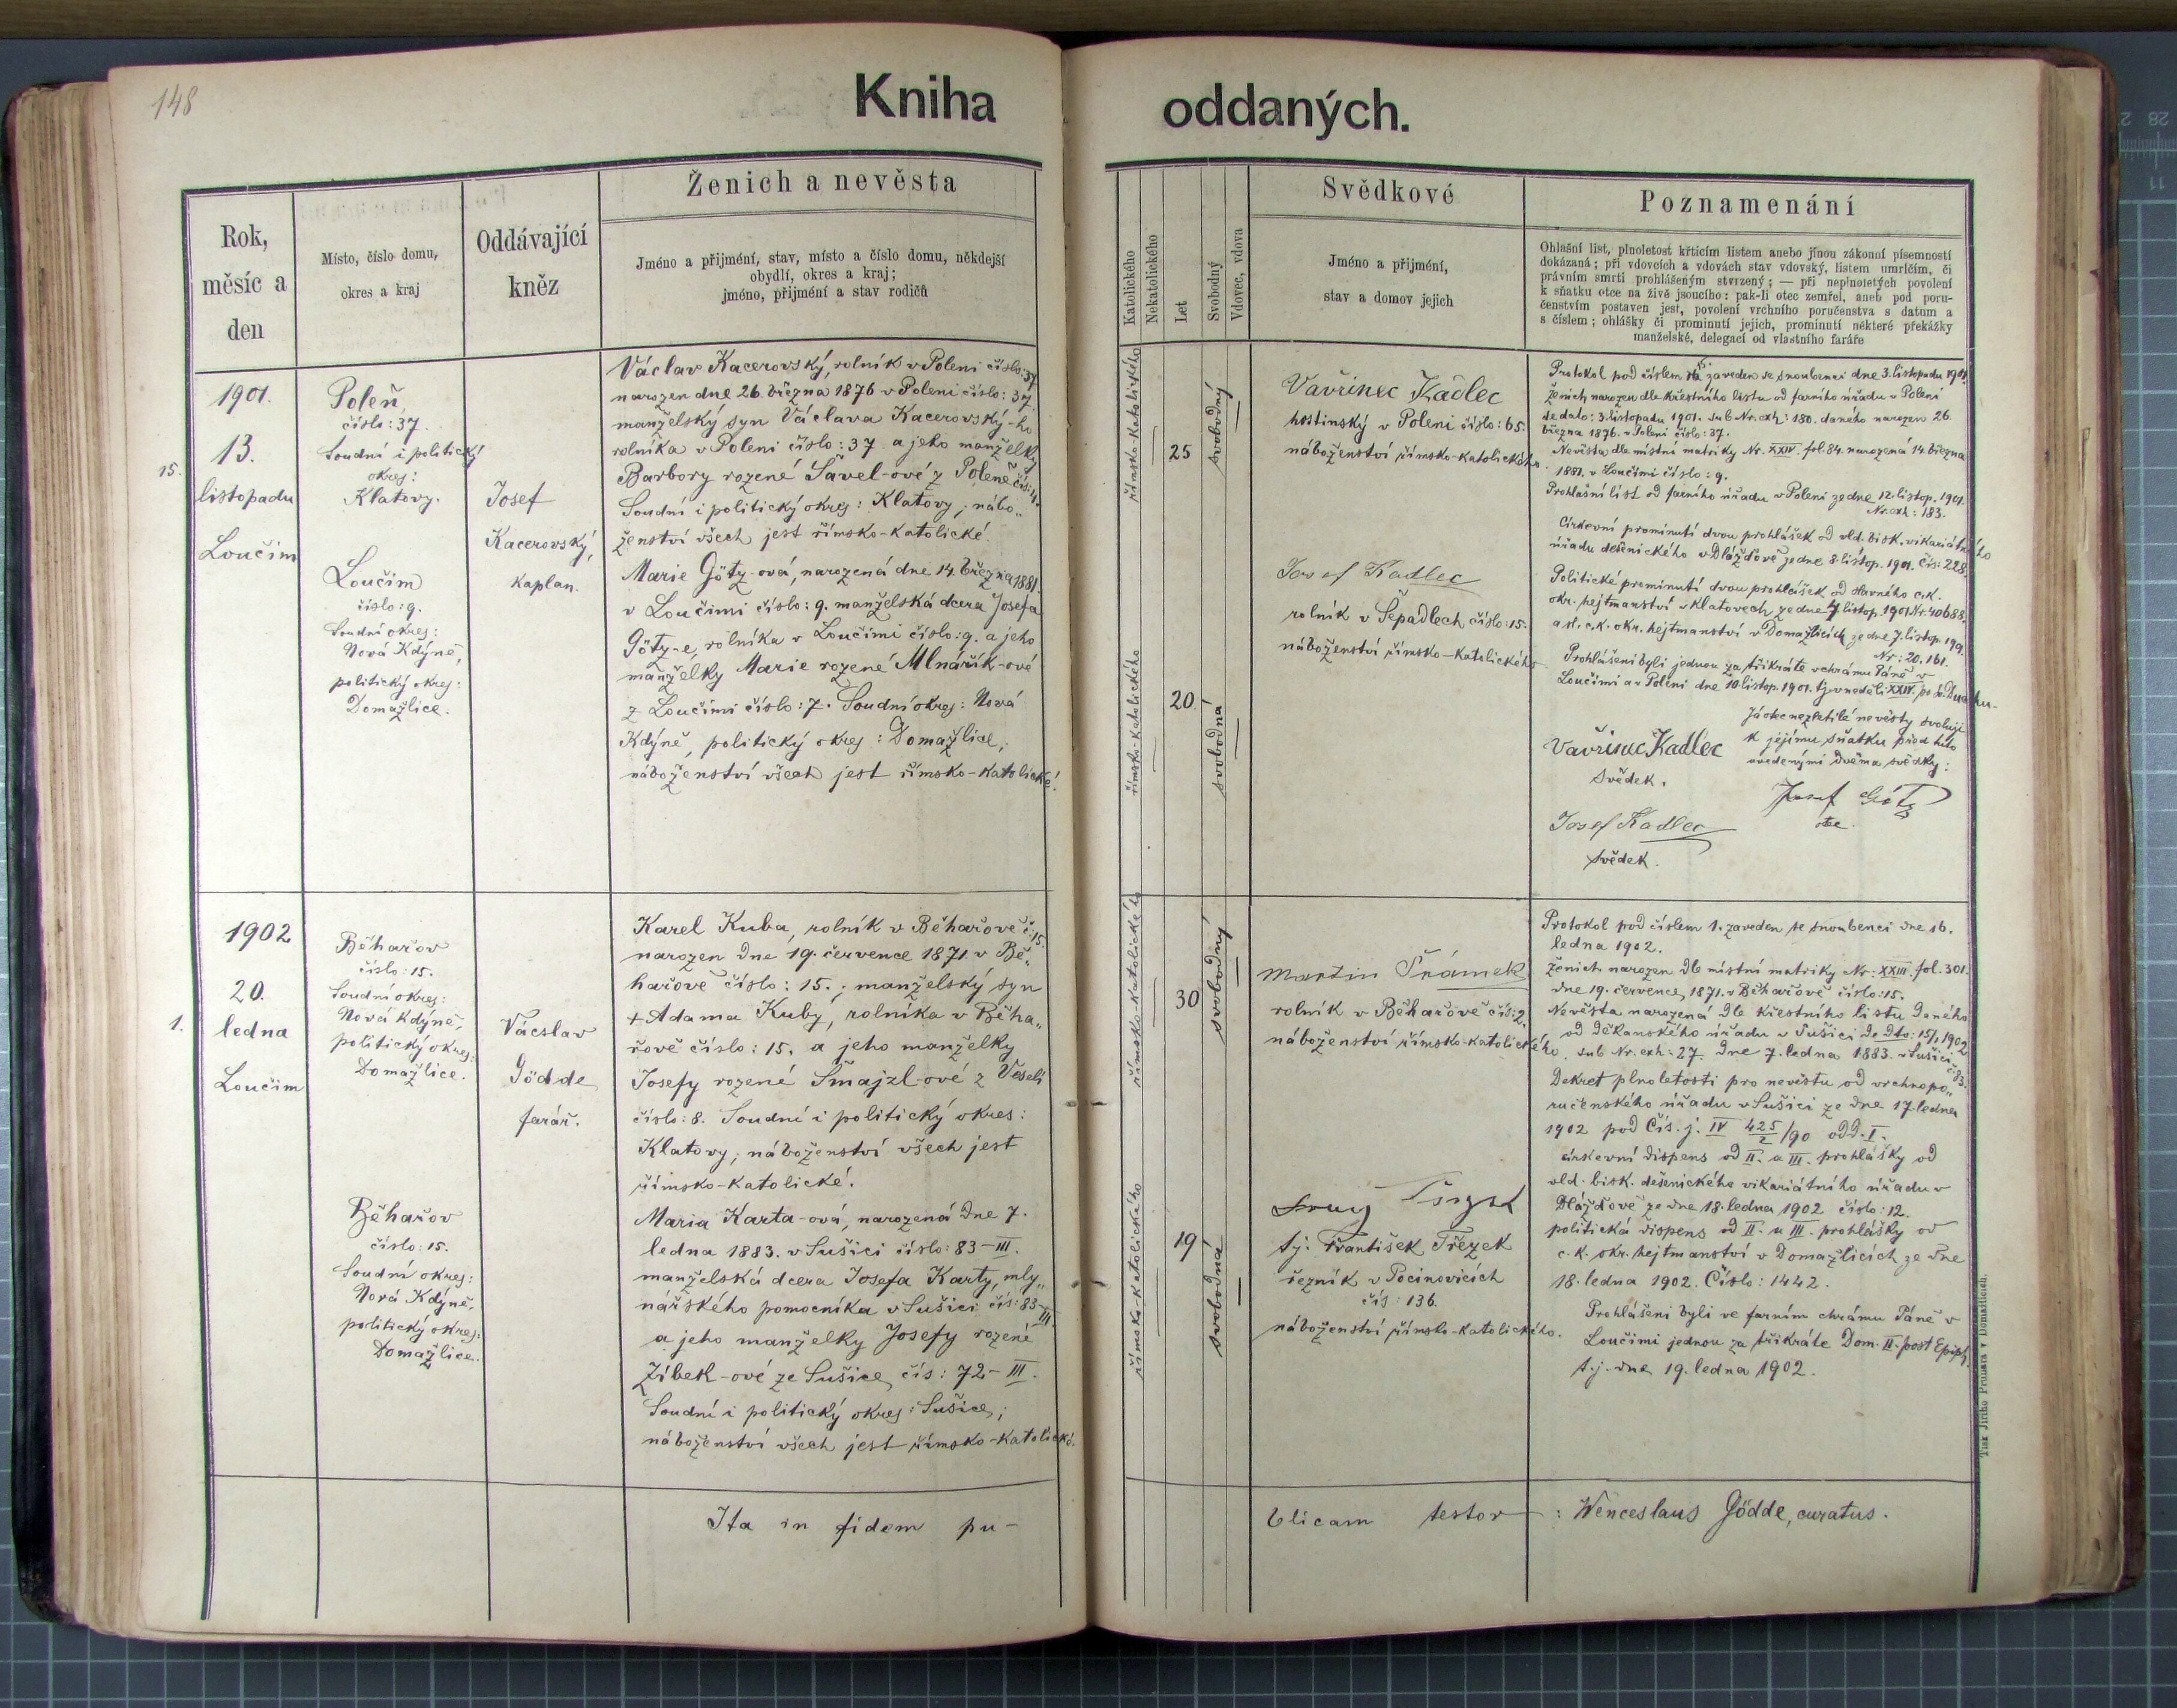 148
Kniha
oddaných.
Rok,
měsíc a
den
Místo, číslo domu,
okres a kraj
Oddávající
kněz
Ženich a nevěsta
Jméno a přijmění, stav, místo a číslo domu, někdejší
obydlí, okres a kraj;
jméno, přijmění a stav rodičů
Katolického
Nekatolického
Let
Svobodný
Vdovec, vdova
Svědkové
Jméno a přijmění,
stav a domov jejich
Poznamenání
Ohlašní list, plnoletost křticím listem anebo jinou zákonní písemností
dokázaná; při vdovcích a vdovách stav vdovský, listem umrlčím, či
právním smrtí prohlášeným stvrzený; — při neplnoletých povolení
k sňatku otce na živě jsoucího: pak-li otec zemřel, aneb pod poru-
čenstvím postaven jest, povolení vrchního poručenstva s datum a
s číslem; ohlášky či prominutí jejich, prominutí některé překážky
manželské, delegací od vlastního faráře
15.
1901.
13.
listopadu
Loučim
Poleň
číslo: 37.
Soudní i politický
okres:
Klatovy.
Loučim
číslo: 9.
Soudní okres:
Nová Kdýně,
politický okres:
Domažlice.
Josef
Kacerovský,
kaplan.
Václav Kacerovský, rolník v Poleni číslo: 37
narozen dne 26. března 1876 v Poleni číslo: 37.
manželský syn Václava Kacerovský-ho
rolníka v Poleni číslo: 37 a jeho manželky
Barbory rozené Šavel-ové z Poleně čís: 4.
Soudní i politický okres: Klatovy; nábo„
ženství všech jest římsko-katolické.
Marie Götz-ová, narozená dne 14. března 1881.
v Loučimi číslo: 9. manželská dcera Josefa
Götz-e, rolníka v Loučimi číslo: 9. a jeho
manželky Marie rozené Mlnářík-ové
z Loučimi číslo: 7. Soudní okres: Nová
Kdýně, politický okres: Domažlice;
náboženství všech jest římsko-katolické.
římsko-katolického
25
svobodný
římsko-katolického
20
svobodná
Vavřinec Kadlec
hostinský v Poleni číslo: 65.
náboženství římsko-katolického.
Josef Kadlec
rolník v Šepadlech číslo: 15.
náboženství římsko-katolického
Protokol pod číslem zaveden se snoubenci dne 3. listopadu 1901.
Ženich narozen dle křestního listu od farního úřadu v Poleni
de dato: 3. listopadu 1901. sub Nr. exh: 180. daného narozen 26.
března 1876. v Poleni číslo: 37.
Nevěsta dle místní matriky Nr. XXIV. fol. 84. narozená 14. března
1881. v Loučimi číslo: 9.
Prohlašní list od farního úřadu v Poleni ze dne 12. listop. 1901.
Nr. exh: 183.
Církevní prominutí dvou prohlášek od vld. bisk. vikariátního
úřadu dešenického v Dlážďově ze dne 8. listop. 1901. čís: 228.
Politické prominutí dvou prohlášek od slavného c. k.
okr. hejtmanství v Klatovech ze dne 7. listop. 1901 Nr. 40688.
a sl. c. k. okr. hejtmanství v Domažlicích ze dne 7. listop. 1901.
Nr: 20,161.
Prohlášeni byli jednou za třikráte v chrámu Páně v
Loučimi a v Poleni dne 10. listop. 1901. tj. v neděli XXIV. po sv. Duchu.
Já otec nezletilé nevěsty svoluji
k jejímu sňatku před túto
uvedenými dvěma svědky:
Vavřinec Kadlec
svědek.
Josef Götz
otec.
Josef Kadlec
svědek.
1.
1902
20.
ledna
Loučim
Běhařov
číslo: 15.
Soudní okres:
Nová Kdýně,
politický okres:
Domažlice.
Běhařov
číslo: 15.
Soudní okres:
Nová Kdýně,
politický okres:
Domažlice.
Vácslav
Gödde
farář.
Karel Kuba, rolník v Běhařově č: 15.
narozen dne 19. července 1871. v Bě„
hařově číslo: 15.; manželský syn
+ Adama Kuby, rolníka v Běha„
řově číslo: 15. a jeho manželky
Josefy rozené Šmajzl-ové z Veselí
číslo: 8. Soudní i politický okres:
Klatovy; náboženství všech jest
římsko-katolické.
Maria Karta-ová, narozená dne 7.
ledna 1883. v Sušici číslo: 83-III.
manželská dcera Josefa Karty, mly„
nářského pomocníka v Sušici čís: 83-III
a jeho manželky Josefy rozené
Zíbek-ové ze Sušice, čís: 72-III.
Soudní i politický okres: Sušice;
náboženství všech jest římsko-katolické.
římsko-katolického
30
svobodný
římsko-katolického
19
svobodná
Martin Šrámek
rolník v Běhařově čís: 2.
náboženství římsko-katolického.
tj: František Třezek
řezník v Pocinovicích
čís: 136.
náboženství římsko-katolického.
Protokol pod číslem 1. zaveden se snoubenci dne 16.
ledna 1902.
Ženich narozen dle místní matriky Nr: XXIII. fol. 301.
dne 19. července 1871. v Běhařově číslo: 15.
Nevěsta narozená dle křestního listu daného
od děkanského úřadu v Sušici de dto: 15/1 1902
sub Nr. exh: 27. dne 7. ledna 1883. v Sušici č. 83.
Dekret plnoletosti pro nevěstu od vrchnopo„
ručenského úřadu v Sušici ze dne 17. ledna
1902 pod Čís. j. IV 425/2 /90 odd. I.
církevní dispens od II. a III. prohlášky od
vld. bisk. dešenického vikariátního úřadu v
Dlážďově ze dne 18. ledna 1902 číslo: 12.
politická dispens od II. a III. prohlášky od
c. k. okr. hejtmanství v Domažlicích ze dne
18. ledna 1902. Číslo: 1442.
Prohlášeni byli ve farním chrámu Páně v
Loučimi jednou za třikráte Dom. II. post Epiph.
t. j. dne 19. ledna 1902.
Ita in fidem pu-
blicam testor : Wenceslaus Gödde, curatus.
Tisk Jiřího Prunara v Domažlicích.